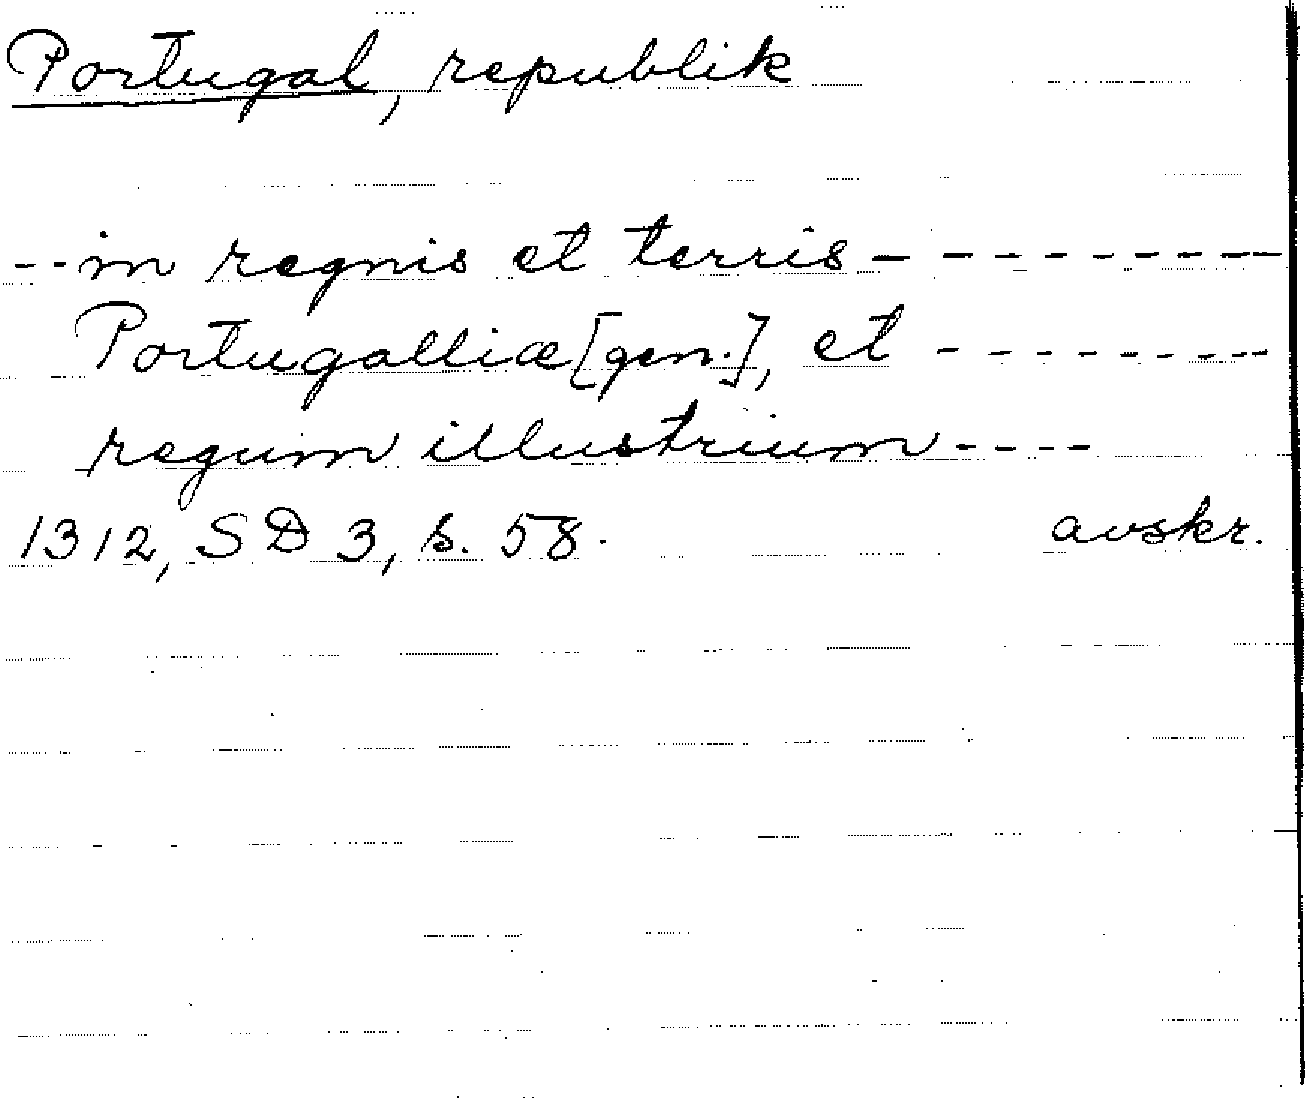 Portugal, republik
--in regnis et terris---------
Portugalliæ[gen.], et --------
regum illustrium----
1312, SD 3, s. 58. avskr.